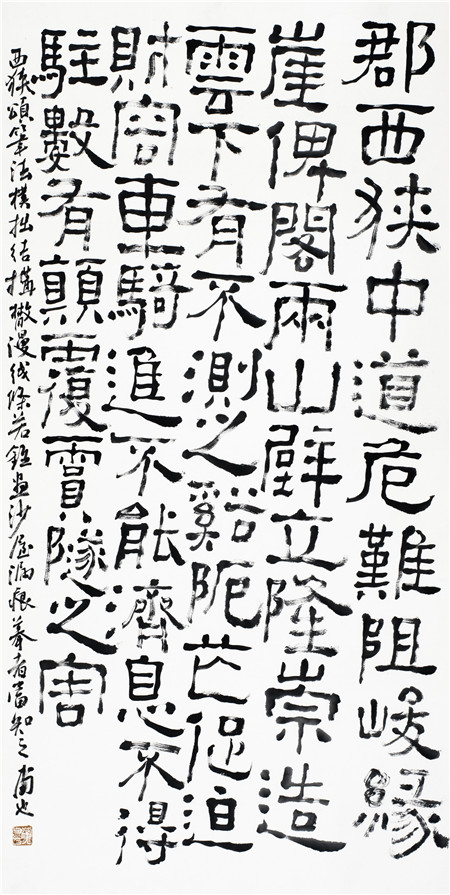 郡西狹中道危難阻峻緣
崖俾閣兩山壁立隆崇造
雲下有不測之谿阨芒促迫
財容車騎進不能濟息不得
駐數有顛覆霣隧之害
西狹頌筆法樸拙結構散漫线條若錐畫沙屋漏痕摹者當知之